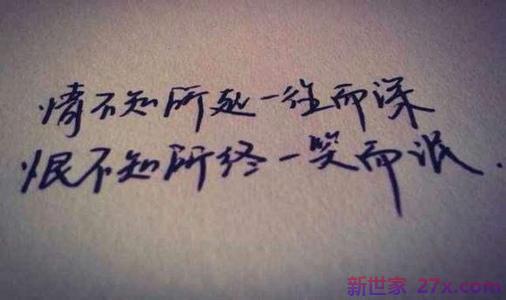 情不知所起一往而深
恨不知所终一笑而泯.
新世家 27x.com